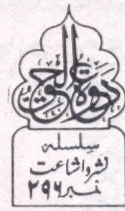 دعوۃ الحق
سلسلہ
نشر و اشاعت
نمبر ۲۹۶